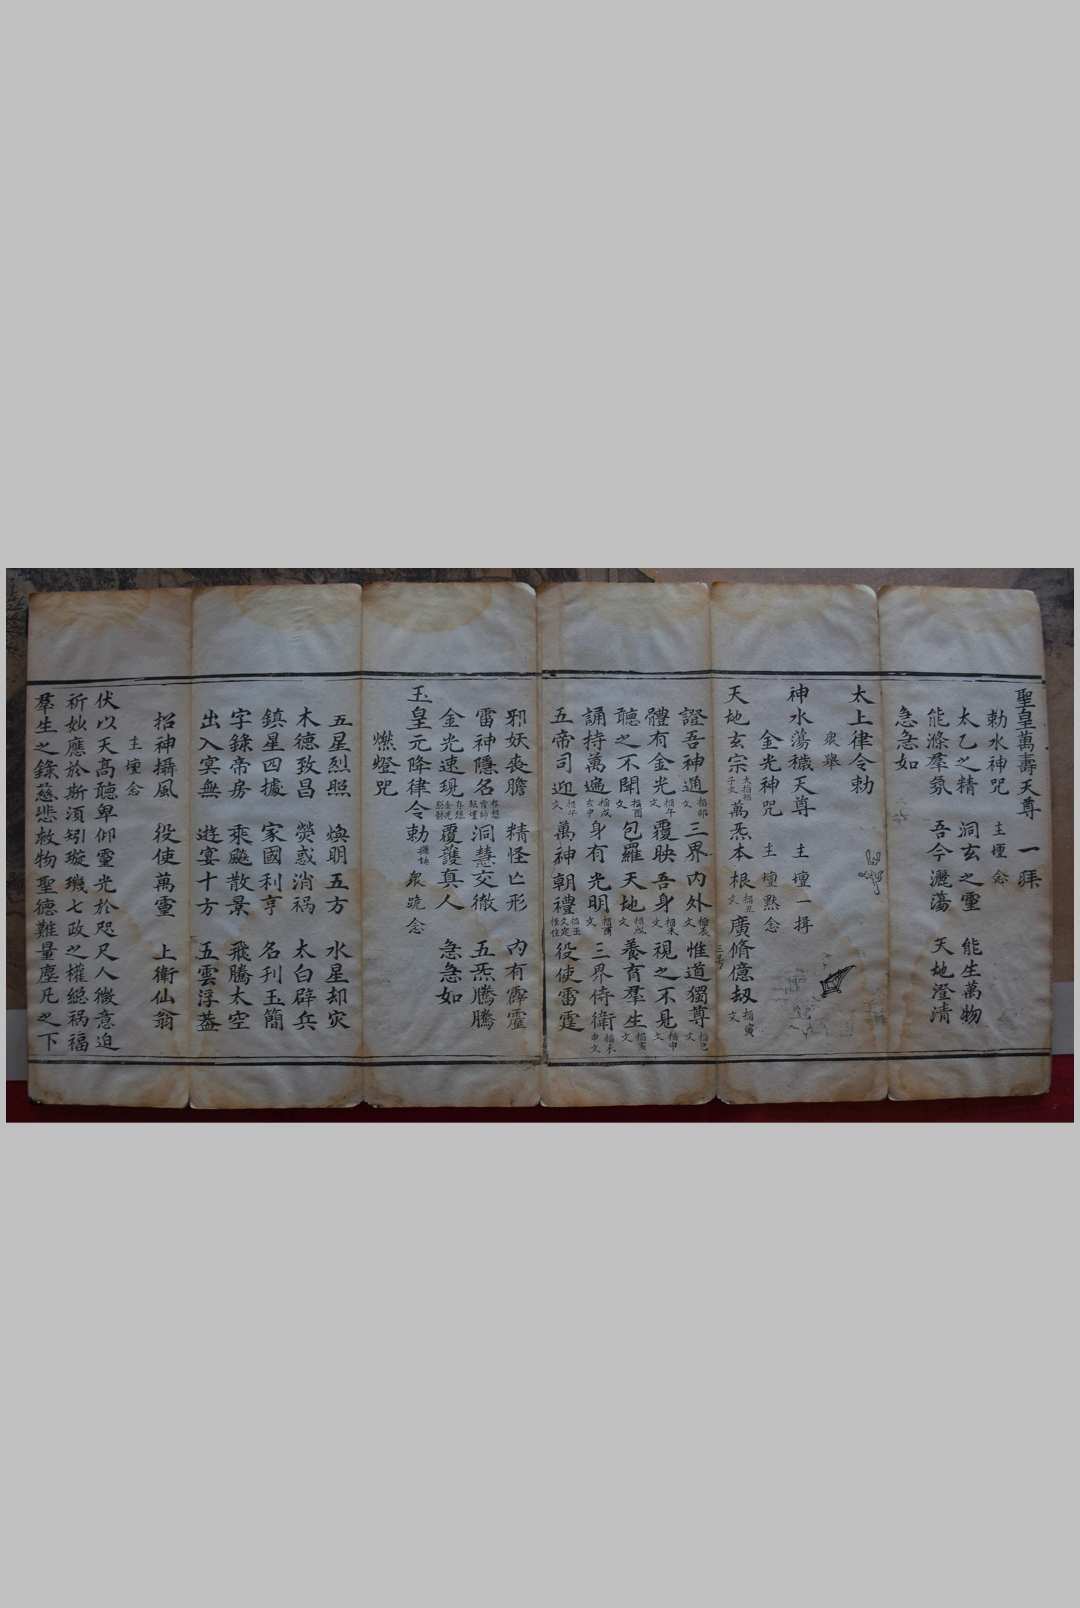 聖皇萬壽天尊 一拜
勅水神咒 主壇念
太乙之精 洞玄之靈 能生萬物
能滌羣氛 吾今灑蕩 天地澄清
急急如
太上律令勅
衆舉
神水蕩穢天尊 主壇一揖
金光神咒 主壇默念
天地玄宗 萬炁本根 廣脩億劫
證吾神通 三界內外 惟道獨尊
體有金光 覆映吾身 視之不見
聽之不聞 包羅天地 養育羣生
誦持萬遍 身有光明 三界侍衛
五帝司迎 萬神朝禮 役使雷霆
邪妖喪膽 精怪亡形 內有霹靂
雷神隱名 洞慧交徹 五炁騰騰
金光速現 覆護真人 急急如
玉皇元降律令勅 衆跪念
燃燈咒
五星烈照 煥明五方 水星却灾
木德致昌 熒惑消祸 太白辟兵
鎮星四據 家國利亨 名刊玉簡
字錄帝房 乘飈散景 飛騰太空
出入冥無 遊宴十方 五雲浮葢
招神攝風 役使萬靈 上衛仙翁
主壇念
伏以天高聽卑仰靈光於咫尺人微意迫
祈妙應於斯須矧璇璣七政之權緫祸福
羣生之錄慈悲救物聖德難量塵凡之下